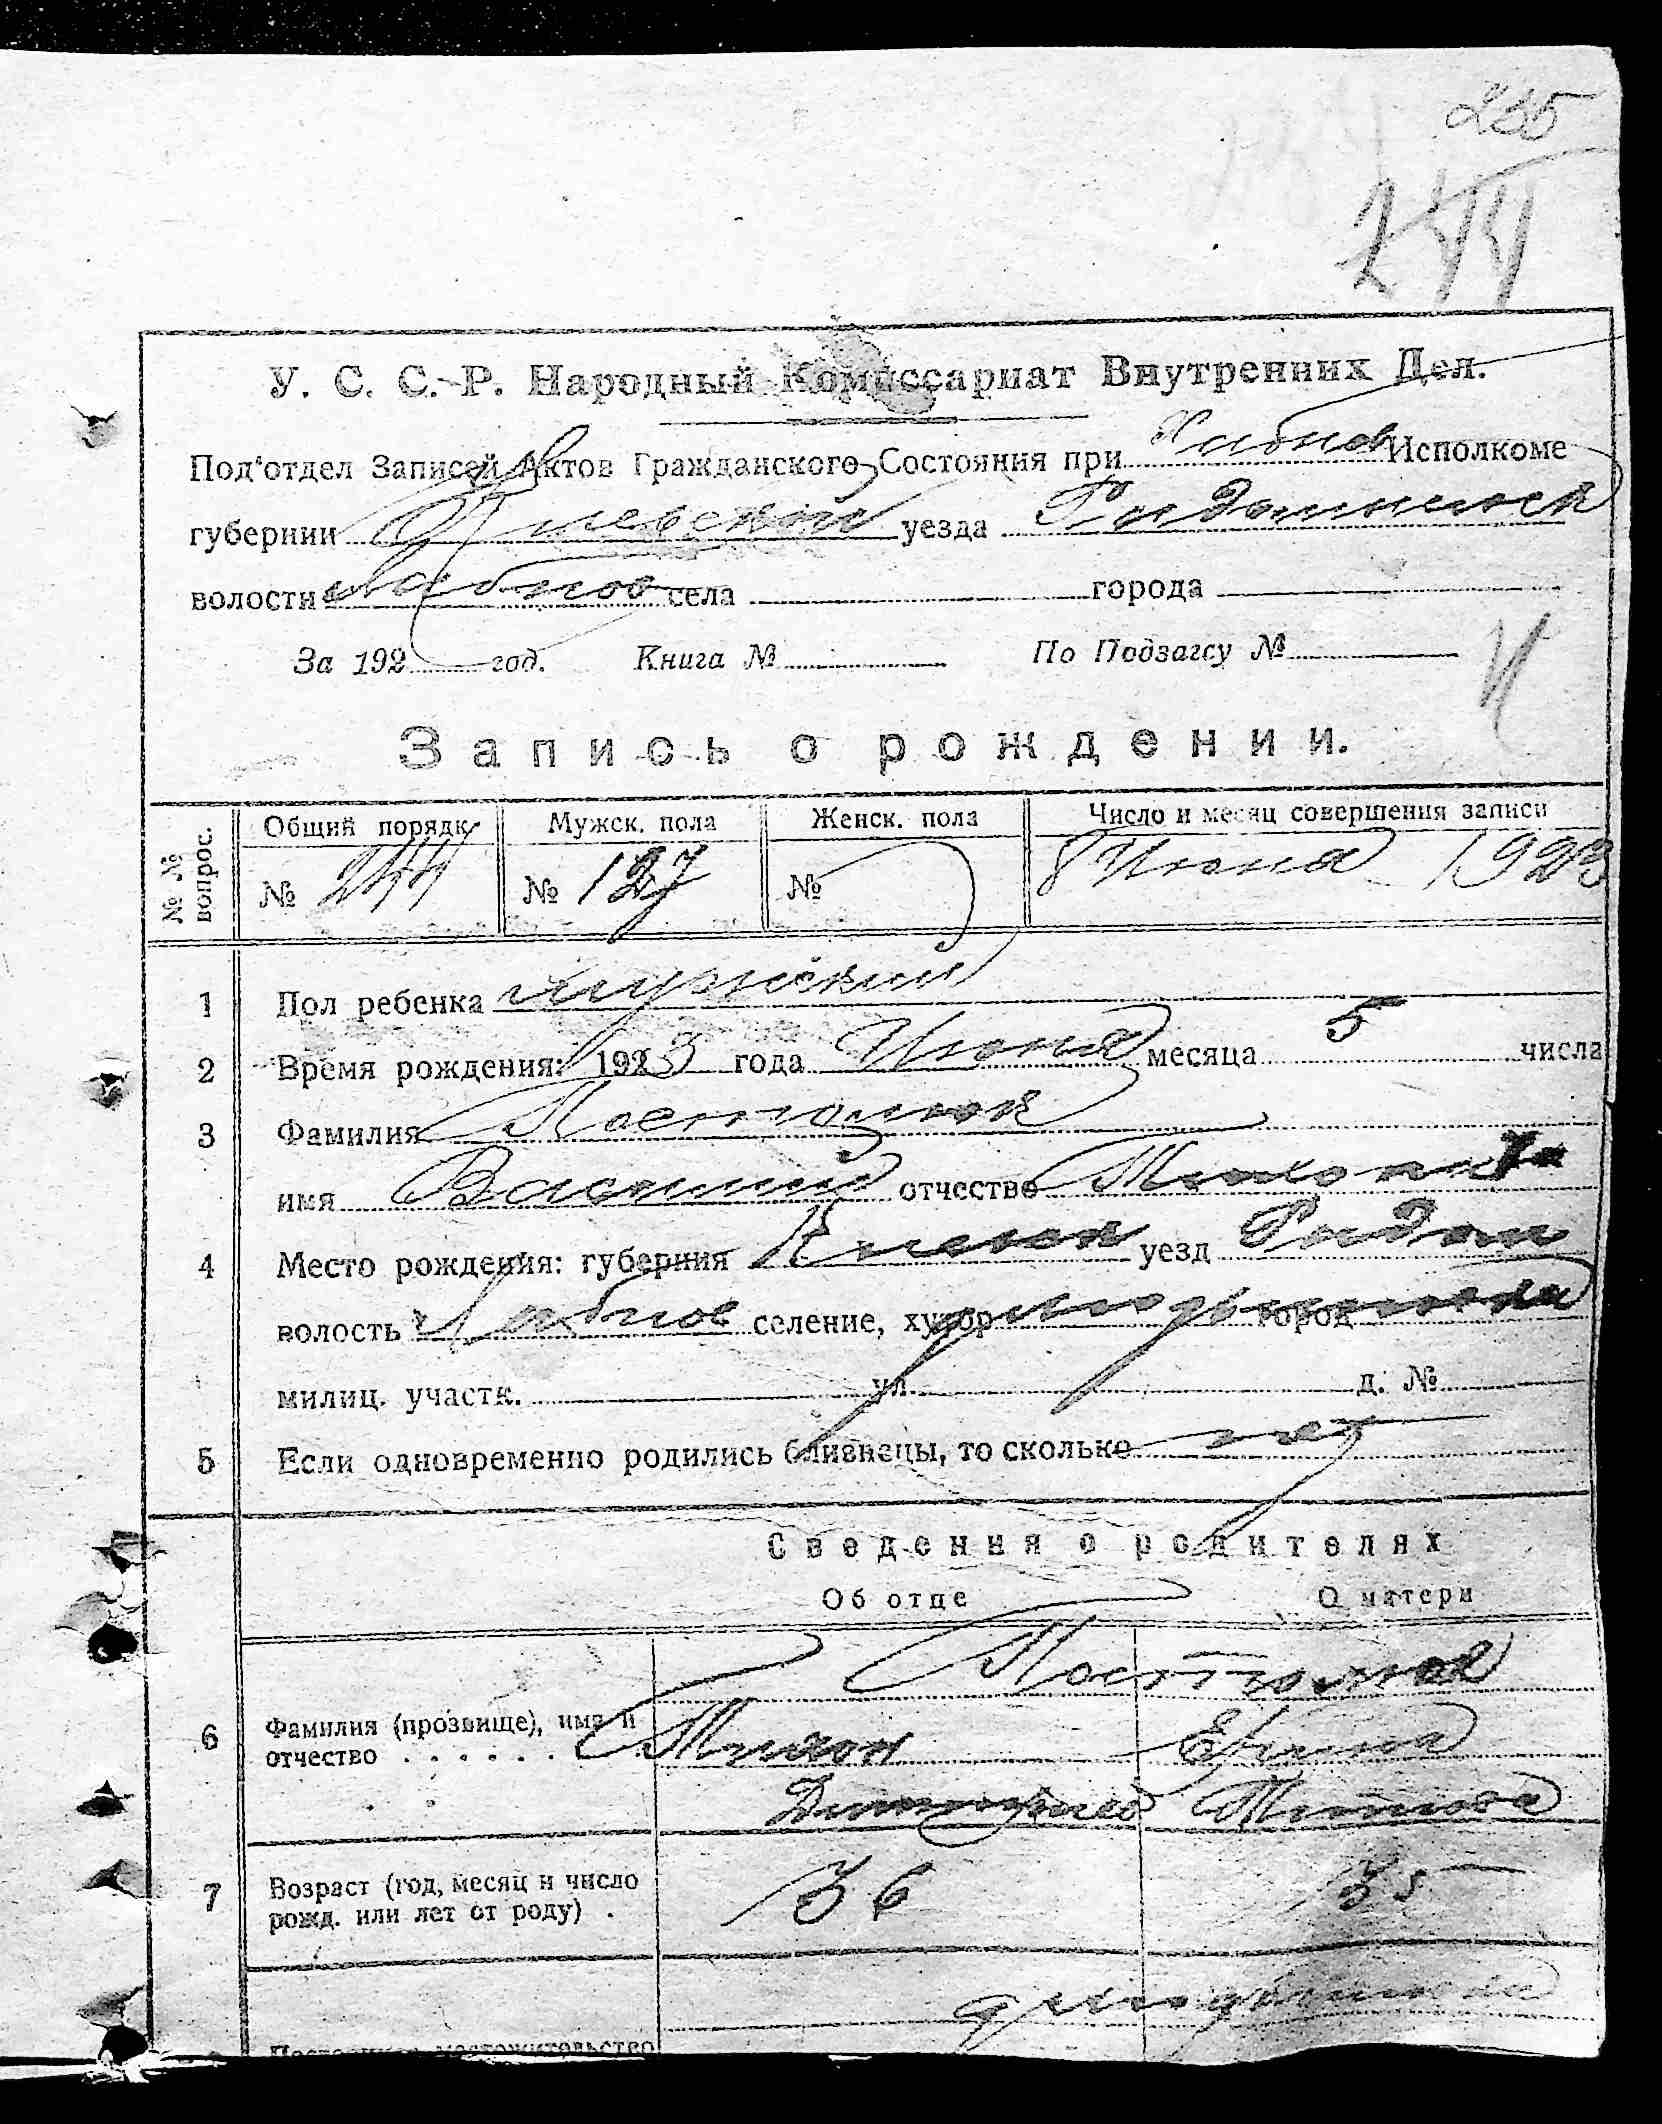 255
244
У. С. С. Р. Народный Комиссариат Внутренних Дел.
Под'отдел Записей Актов Гражданского Состояния при Хабнов Исполкоме
губернии Киевской уезда Радомысльск
волости Хабнов села города
За 192 год. Книга № По Подзагсу №
Запись о рождении.
№ № вопрос. Общий порядк Мужск. пола Женск. пола Число и месяц совершения записи
№ 244 № 127 № 8 Июня 1923
1 Пол ребенка мужский
2 Время рождения: 1923 года Июня месяца 5 числа
3 Фамилия
имя Василий отчество
4 Место рождения: губерния Киевск уезд Радом
волость Хабнов селение, хутор город
милиц. участк. ул. д. №
5 Если одновременно родились близнецы, то сколько нет
Сведения о родителях
Об отце О матери
6 Фамилия (прозвище), имя и
отчество . . . . . .
Титова
7 Возраст (год, месяц и число
рожд. или лет от роду) . 36 35
Постоянное местожительство